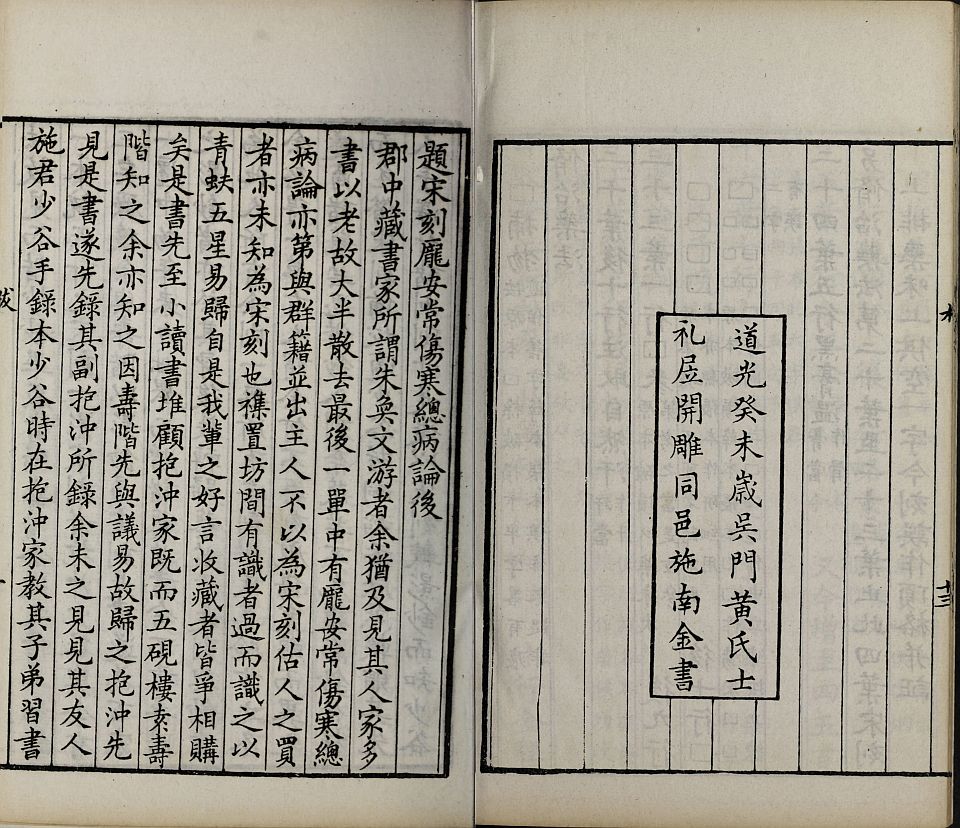 道光癸未嵗吳門黃氏士
礼㞐開雕同邑施南金書
十三
題宋刻龐安常傷寒總病論後
郡中藏書家所謂朱奐文游者余猶及見其人家多
書以老故大半散去最後一單中有龐安常傷寒總
病論亦第與群籍並出主人不以為宋刻估人之買
者亦未知為宋刻也襍置坊間有識者過而識之以
青蚨五星易歸自是我輩之好言收藏者皆爭相購
矣是書先至小讀書堆顧抱沖家既而五硯樓袁壽
階知之余亦知之因壽階先與議易故歸之抱沖先
見是書遂先錄其副抱沖所錄余未之見見其友人
施君少谷手錄本少谷時在抱沖家教其子弟習書
跋
一